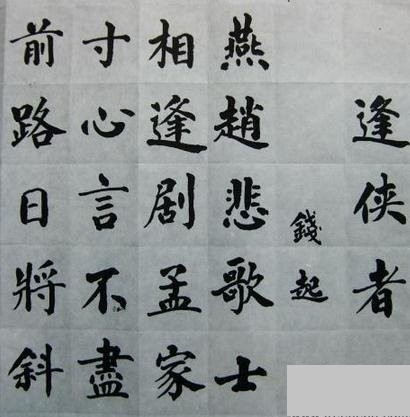 逢侠者
錢起
燕趙悲歌士
相逢剧孟家
寸心言不盡
前路日將斜